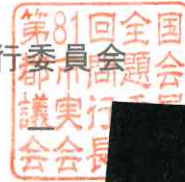 行委員会
第81回全国
都市問題会
議実行
会会長